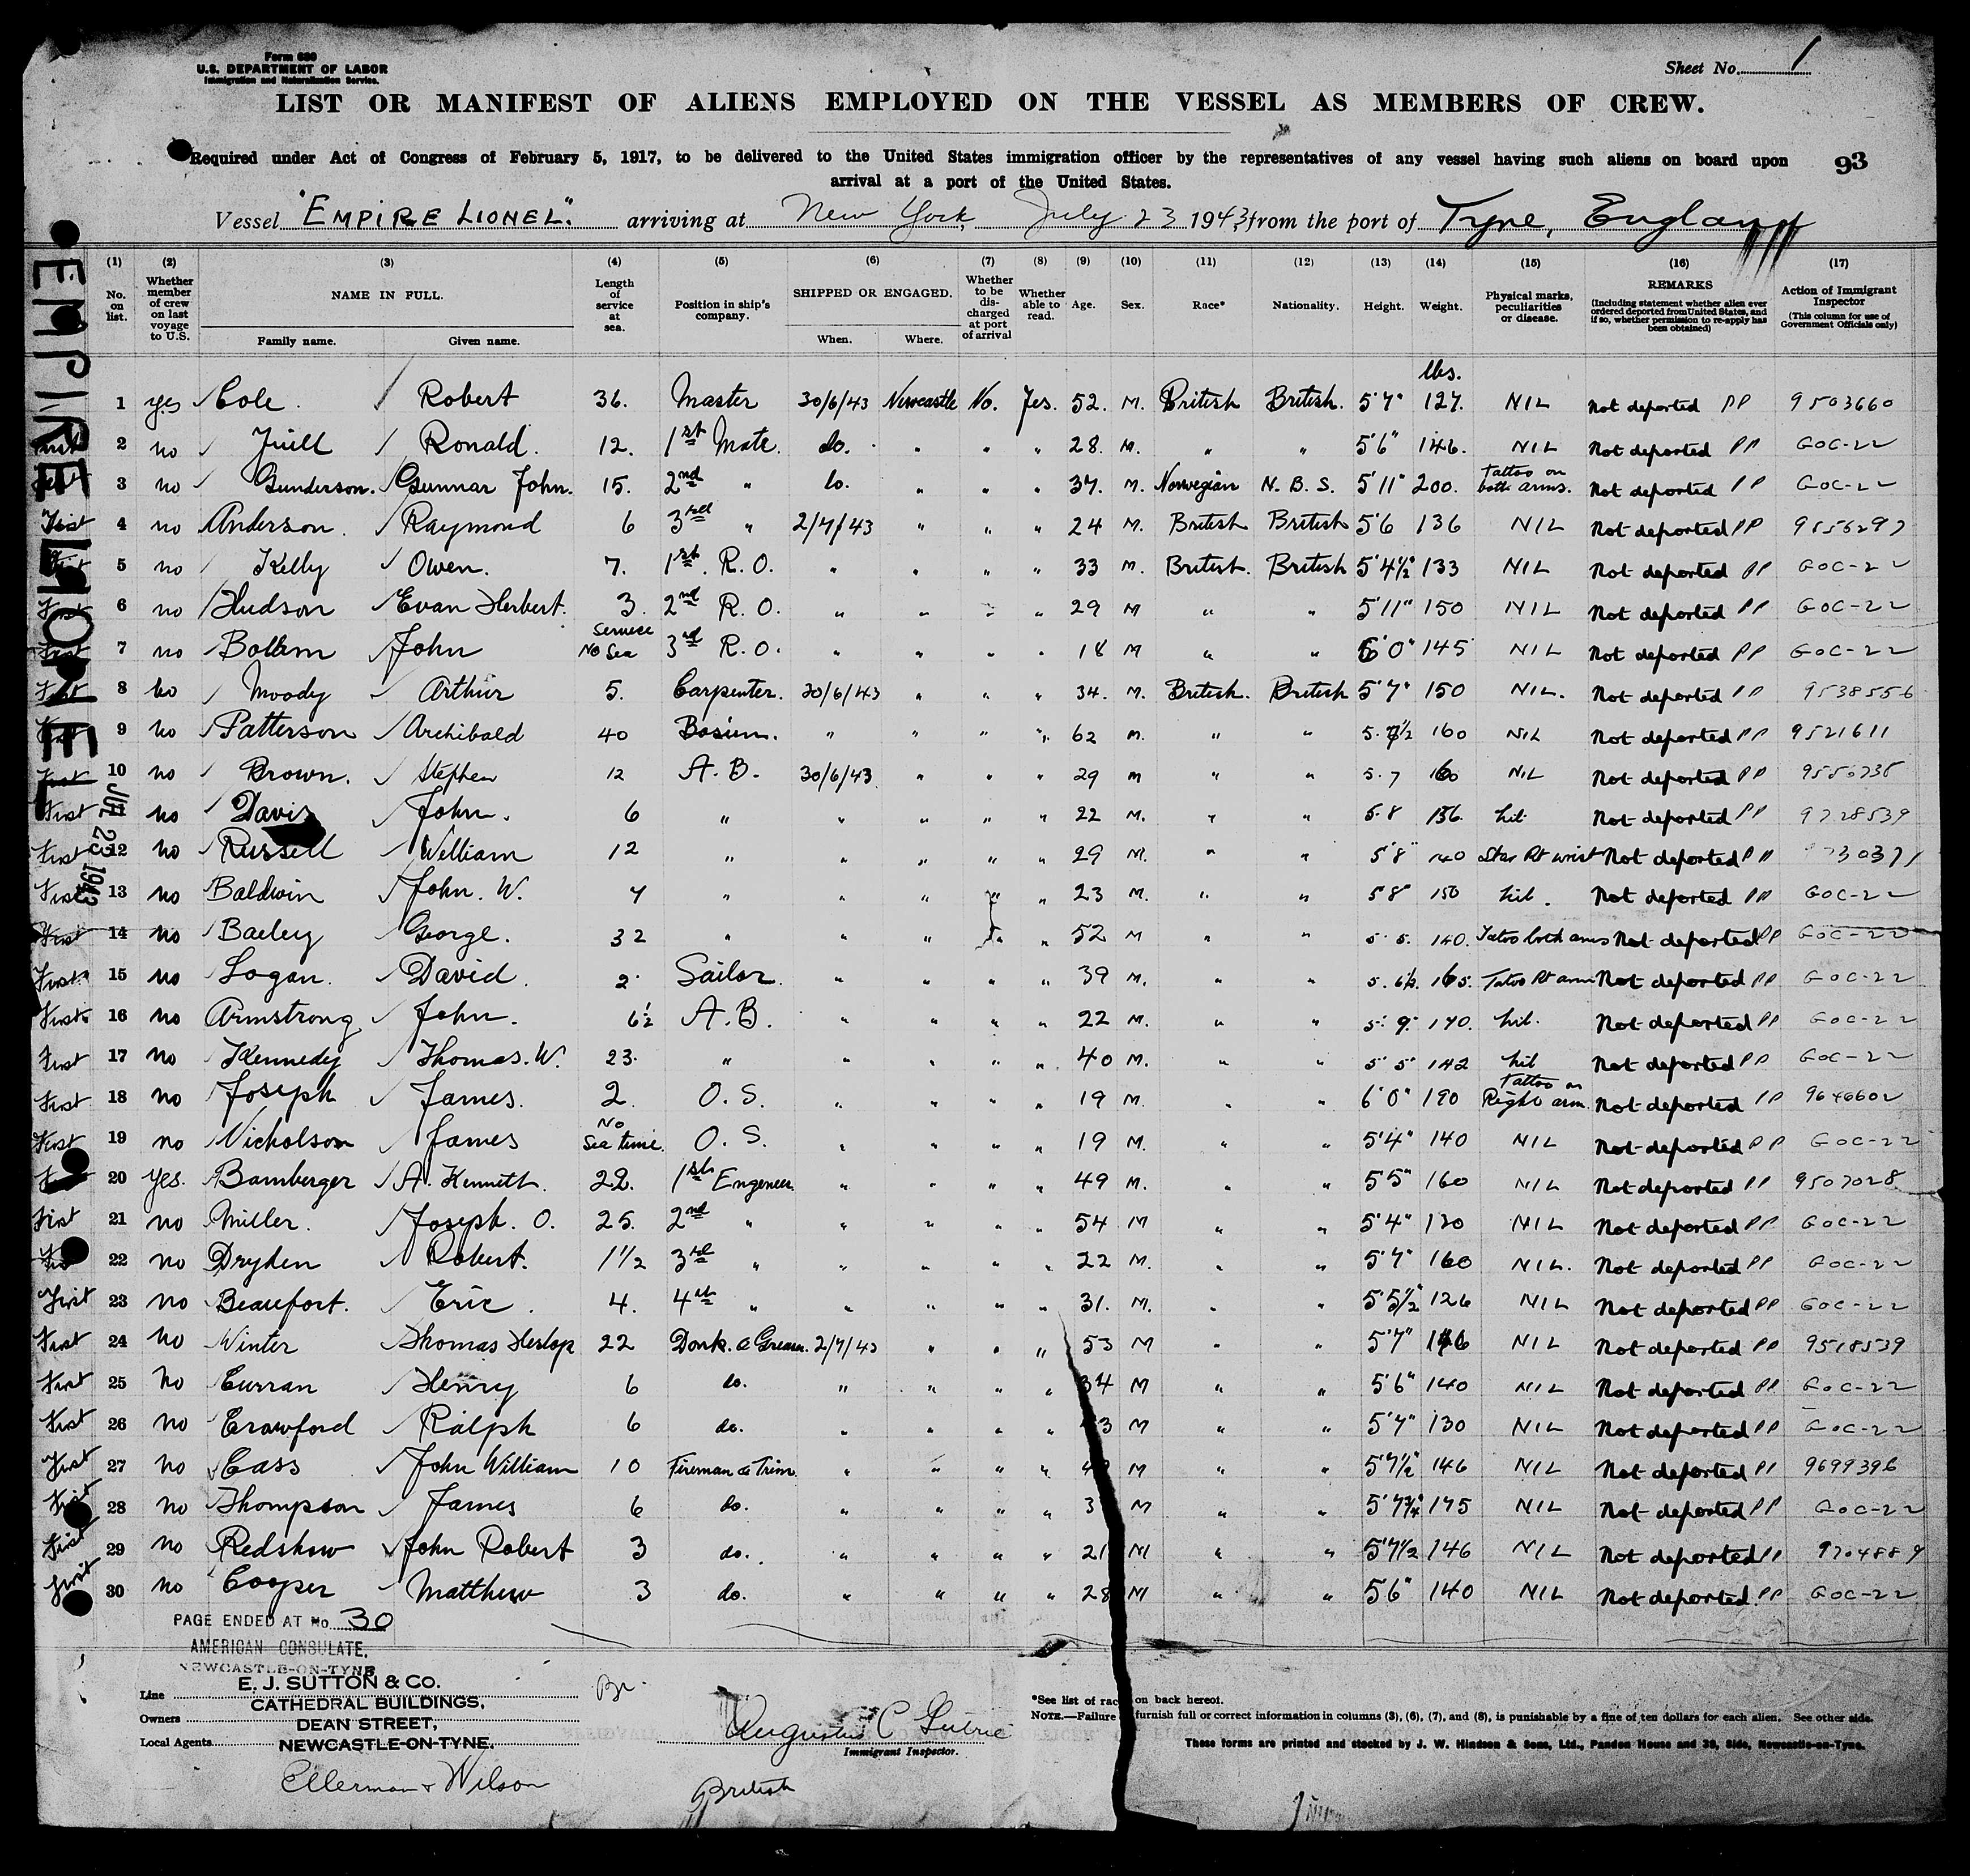 Form 689
U.S. DEPARTMENT OF LABOR
Immigration and Naturalization Service.
Sheet No. 1
LIST OR MANIFEST OF ALIENS EMPLOYED ON THE VESSEL AS MEMBERS OF CREW.
Required under Act of Congress of February 5, 1917, to be delivered to the United States immigration officer by the representatives of any vessel having such aliens on board upon
arrival at a port of the United States.
93
Vessel "EMPIRE LIONEL". arriving at New York, July 23 1943, from the port of Tyne, England
(1) (2) (3) (4) (5) (6) (7) (8) (9) (10) (11) (12) (13) (14) (15) (16) (17)
No. on list. Whether member of crew on last voyage to U.S. NAME IN FULL. Family name. Given name. Length of service at sea. Position in ship's company. SHIPPED OR ENGAGED. When. Where. Whether to be discharged at port of arrival Whether able to read. Age. Sex. Race* Nationality. Height. Weight. Physical marks, peculiarities or disease. REMARKS (Including statement whether alien ever ordered deported from United States, and if so, whether permission to re-apply has been obtained) Action of Immigrant Inspector (This column for use of Government Officials only)
lbs.
1 yes Cole Robert 36. Master 30/6/43 Newcastle No. Yes. 52. M. British British. 5'7" 127. NIL Not deported PP 9503660
2 no Ronald. 12. 1st Mate. do. " " " 28. M. " " 5'6" 146. NIL Not deported PP GOC-22
3 no Gunderson. Gunnar John. 15. 2nd " do. " " " 37. M. Norwegian N.B.S. 5'11" 200. Tattoo on both arms. Not deported PP GOC-22
First 4 no Anderson. Raymond 6 3rd " 2/7/43 " " " 24 M. British British 5'6 136 NIL Not deported PP
5 no Kelly Owen. 7. 1st. R.O. " " " " 33 M. British. British 5'4½" 133 NIL Not deported PP GOC-22
First 6 no Hudson Evan Herbert. 3. 2nd R.O. " " " " 29 M " " 5'11" 150 NIL Not deported PP GOC-22
First 7 no John No Sea Service 3rd R.O. " " " " 18 M " " 6'0" 145 NIL Not deported PP GOC-22
First 8 no Moody Arthur 5. Carpenter. 30/6/43 " " " 34. M. British. British 5'7" 150 NIL. Not deported PP 9538556
9 no Patterson Archibald 40 Bosun. " " " " 62 M. " " 5.7½ 160 NIL Not deported PP 9521611
First 10 no Brown. Stephen 12 A.B. 30/6/43 " " " 29 M " " 5.7 160 NIL Not deported PP
First no Davis John. 6 " " " " " 22 M. " " 5.8 156. Nil Not deported PP 9728539
First 12 no Russell William 12 " " " " " 29 M. " " 5'8" 140 Star Rt wrist Not deported PP
First 13 no Baldwin John. W. 7 " " " " " 23 M. " " 5'8" 150 Nil. Not deported PP GOC-22
First 14 no Bailey George. 32 " " " " " 52 M " " 5.5. 140. Tatoo both arms Not deported PP GOC-22
First 15 no Logan. David. 2 Sailor " " " " 39 M. " " 5.6½. 165. Tatoo Rt arm Not deported PP GOC-22
First 16 no Armstrong John. 6½ A.B. " " " " 22 M. " " 5'.9" 170. Nil. Not deported PP GOC-22
First 17 no Kennedy Thomas. W. 23. " " " " " 40 M. " " 5'5" 142 Nil Not deported PP GOC-22
First 18 no Joseph James. 2. O.S. " " " " 19 M. " " 6'0" 190 Tattoo on Right arm. Not deported PP 9646602
First 19 no Nicholson James No Sea time. O.S. " " " " 19 M. " " 5'4" 140 NIL Not deported PP GOC-22
20 yes. Bamberger A. Kenneth. 22. 1st Engeneer " " " " 49 M. " " 5'5" 160 NIL Not deported PP 9507028
First 21 no Miller. Joseph. O. 25. 2nd " " " " " 54 M " " 5'4" 130 NIL Not deported PP GOC-22
22 no Dryden Robert. 1½ 3rd " " " " " 22 M. " " 5'7" 160 NIL. Not deported PP GOC-22
First 23 no Beaufort. Eric. 4. 4th " " " " " 31. M. " " 5'5½" 126 NIL Not deported PP GOC-22
First 24 no Winter Thomas Heslop 22 Donk. & Greaser. 2/7/43 " " " 53 M " " 5'7" 146 NIL Not deported PP 9518539
First 25 no Curran Henry 6 do. " " " " 34 M " " 5'6" 140 NIL Not deported PP GOC-22
First 26 no Crawford Ralph 6 do. " " " " M " " 5'7" 130 NIL Not deported PP GOC-22
First 27 no Cass John William 10 Fireman & Trim. " " " " M " " 5'7½" 146 NIL Not deported PP 9699396
First 28 no Thompson James 6 do. " " " " M " " 5'7¾" 175 NIL Not deported PP GOC-22
First 29 no Redshaw John Robert 3 do. " " " " 21 M " " 5'7½ 146 NIL Not deported PP 9704889
First 30 no Cooper Matthew 3 do. " " " " 28 M " " 5'6" 140 NIL Not deported. PP GOC-22
EMPIRE LIONEL
JUL 23 1943
PAGE ENDED AT No. 30
AMERICAN CONSULATE,
NEWCASTLE-ON-TYNE
Line E. J. SUTTON & CO.
CATHEDRAL BUILDINGS,
Owners DEAN STREET,
Local Agents NEWCASTLE-ON-TYNE.
Ellerman & Wilson
Br.
Augustus C
Immigrant Inspector.
British
*See list of races on back hereof.
NOTE.—Failure furnish full or correct information in columns (3), (6), (7), and (8), is punishable by a fine of ten dollars for each alien. See other side.
These forms are printed and stocked by J. W. Hindson & Sons, Ltd., Pandon House and 39, Side, Newcastle-on-Tyne.